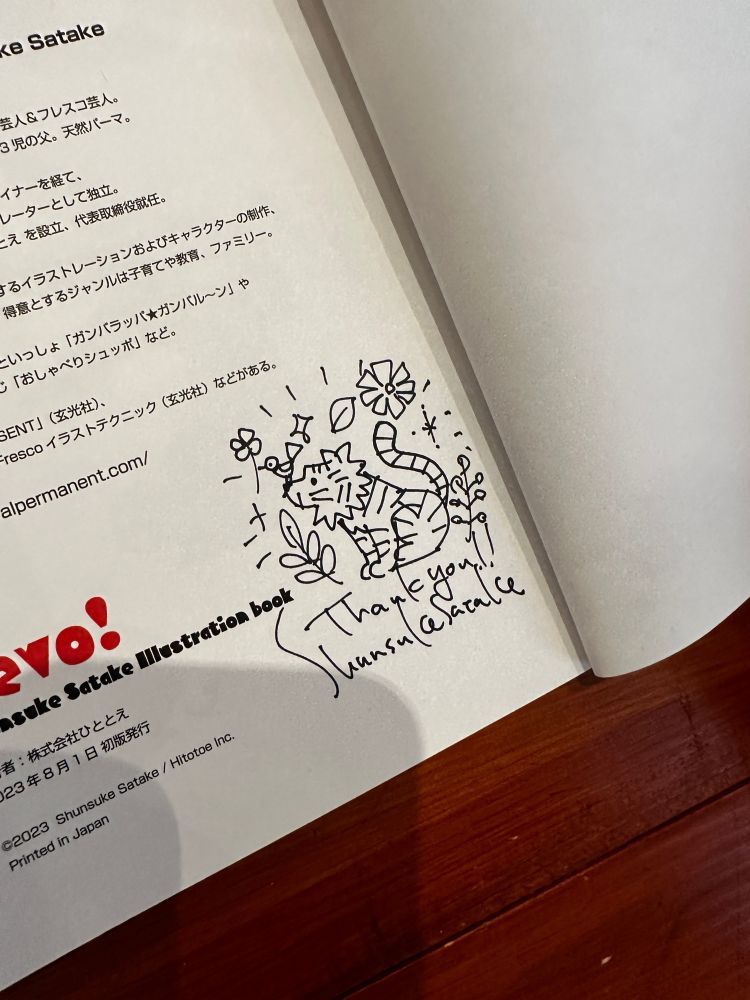 ke Satake
芸人&フレスコ芸人。
3児の父。天然パーマ。
イナーを経て、
レーターとして独立。
とえ を設立、代表取締役就任。
するイラストレーションおよびキャラクターの制作、
得意とするジャンルは子育てや教育、ファミリー。
といっしょ「ガンバラッパ★ガンバル〜ン」や
じ「おしゃべりシュッポ」など。
SENT」(玄光社)、
Fresco イラストテクニック(玄光社)などがある。
alpermanent.com/
evo!
nsuke Satake Illustration book
者:株式会社ひととえ
023年8月1日 初版発行
©2023 Shunsuke Satake / Hitotoe Inc.
Printed in Japan
Thank you!!
Shunsuke Satake